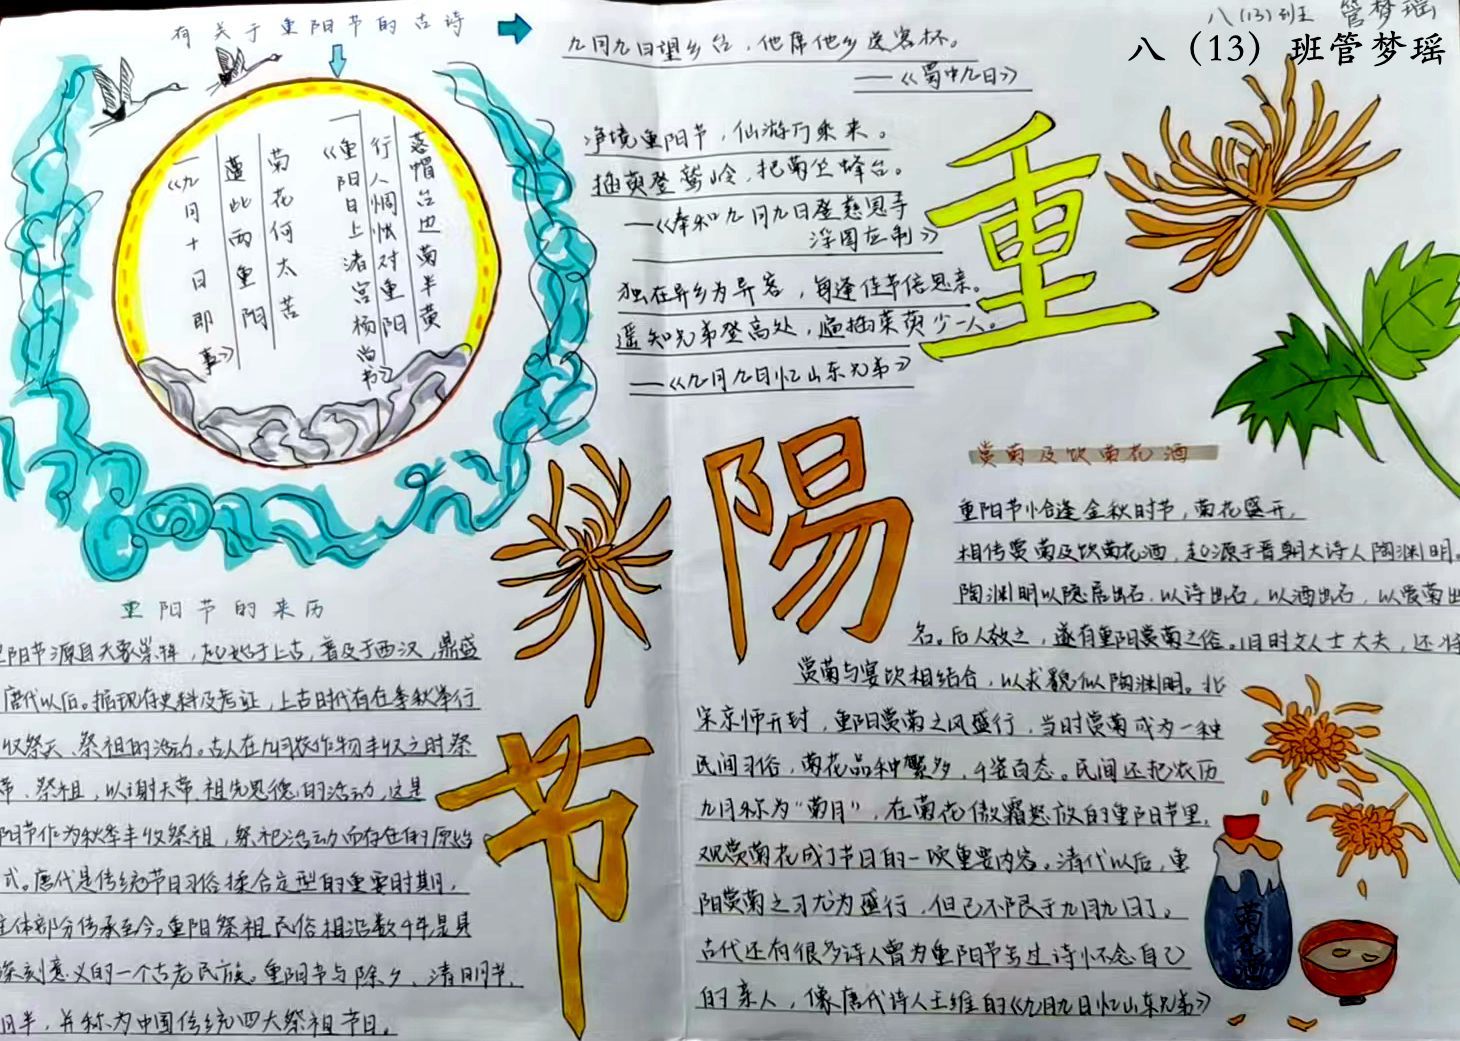 有关于重阳节的古诗
八(13)班 管梦瑶
八（13）班管梦瑶
落帽台边菊半黄
行人惆怅对重阳
—《重阳日上渚宫杨尚书》
菊花何太苦
遭此两重阳
—《九月十日即事》
九月九日望乡台，他席他乡送客杯。
——《蜀中九日》
净境重阳节，仙游万乘来。
插萸登鹫岭，把菊坐蜂台。
——《奉和九月九日登慈恩寺
浮图应制》
独在异乡为异客，每逢佳节倍思亲。
遥知兄弟登高处，遍插茱萸少一人。
——《九月九日忆山东兄弟》
重
陽
节
重阳节的来历
重阳节源自天象崇拜，起始于上古，普及于西汉，鼎盛
唐代以后。据现存史料及考证，上古时代有在季秋举行
收祭天、祭祖的活动。古人在九月农作物丰收之时祭
帝、祭祖，以谢天帝、祖先恩德的活动，这是
阳节作为秋季丰收祭祖，祭祀活动而存在的原始
式。唐代是传统节日习俗揉合定型的重要时期，
主体部分传承至今。重阳祭祖民俗相沿数千年是具
深刻意义的一个古老民族。重阳节与除夕、清明节、
月半，并称为中国传统四大祭祖节日。
赏菊及饮菊花酒
重阳节恰逢金秋时节，菊花盛开，
相传赏菊及饮菊花酒，起源于晋朝大诗人陶渊明。
陶渊明以隐居出名，以诗出名，以酒出名，以爱菊出
名。后人效之，遂有重阳赏菊之俗。旧时文人士大夫，还将
赏菊与宴饮相结合，以求貌似陶渊明。北
宋京师开封，重阳赏菊之风盛行，当时赏菊成为一种
民间习俗，菊花品种繁多，千姿百态。民间还把农历
九月称为“菊月”，在菊花傲霜怒放的重阳节里，
观赏菊花成了节日的一项重要内容。清代以后，重
阳赏菊之习尤为盛行，但已不限于九月九日了。
古代还有很多诗人曾为重阳节写过诗怀念自己
的亲人，像唐代诗人王维的《九月九日忆山东兄弟》
菊花酒